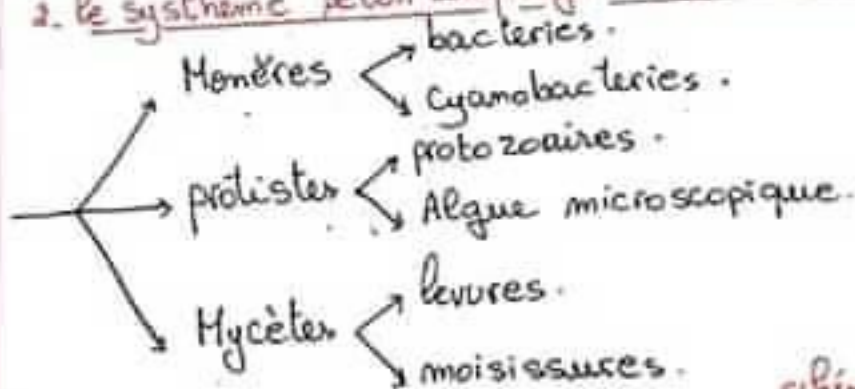 2. le systheme selon
Monères
bacteries.
Cyanobacteries.
protistes
protozoaires.
Algue microscopique.
Mycètes
levures.
moisissures.